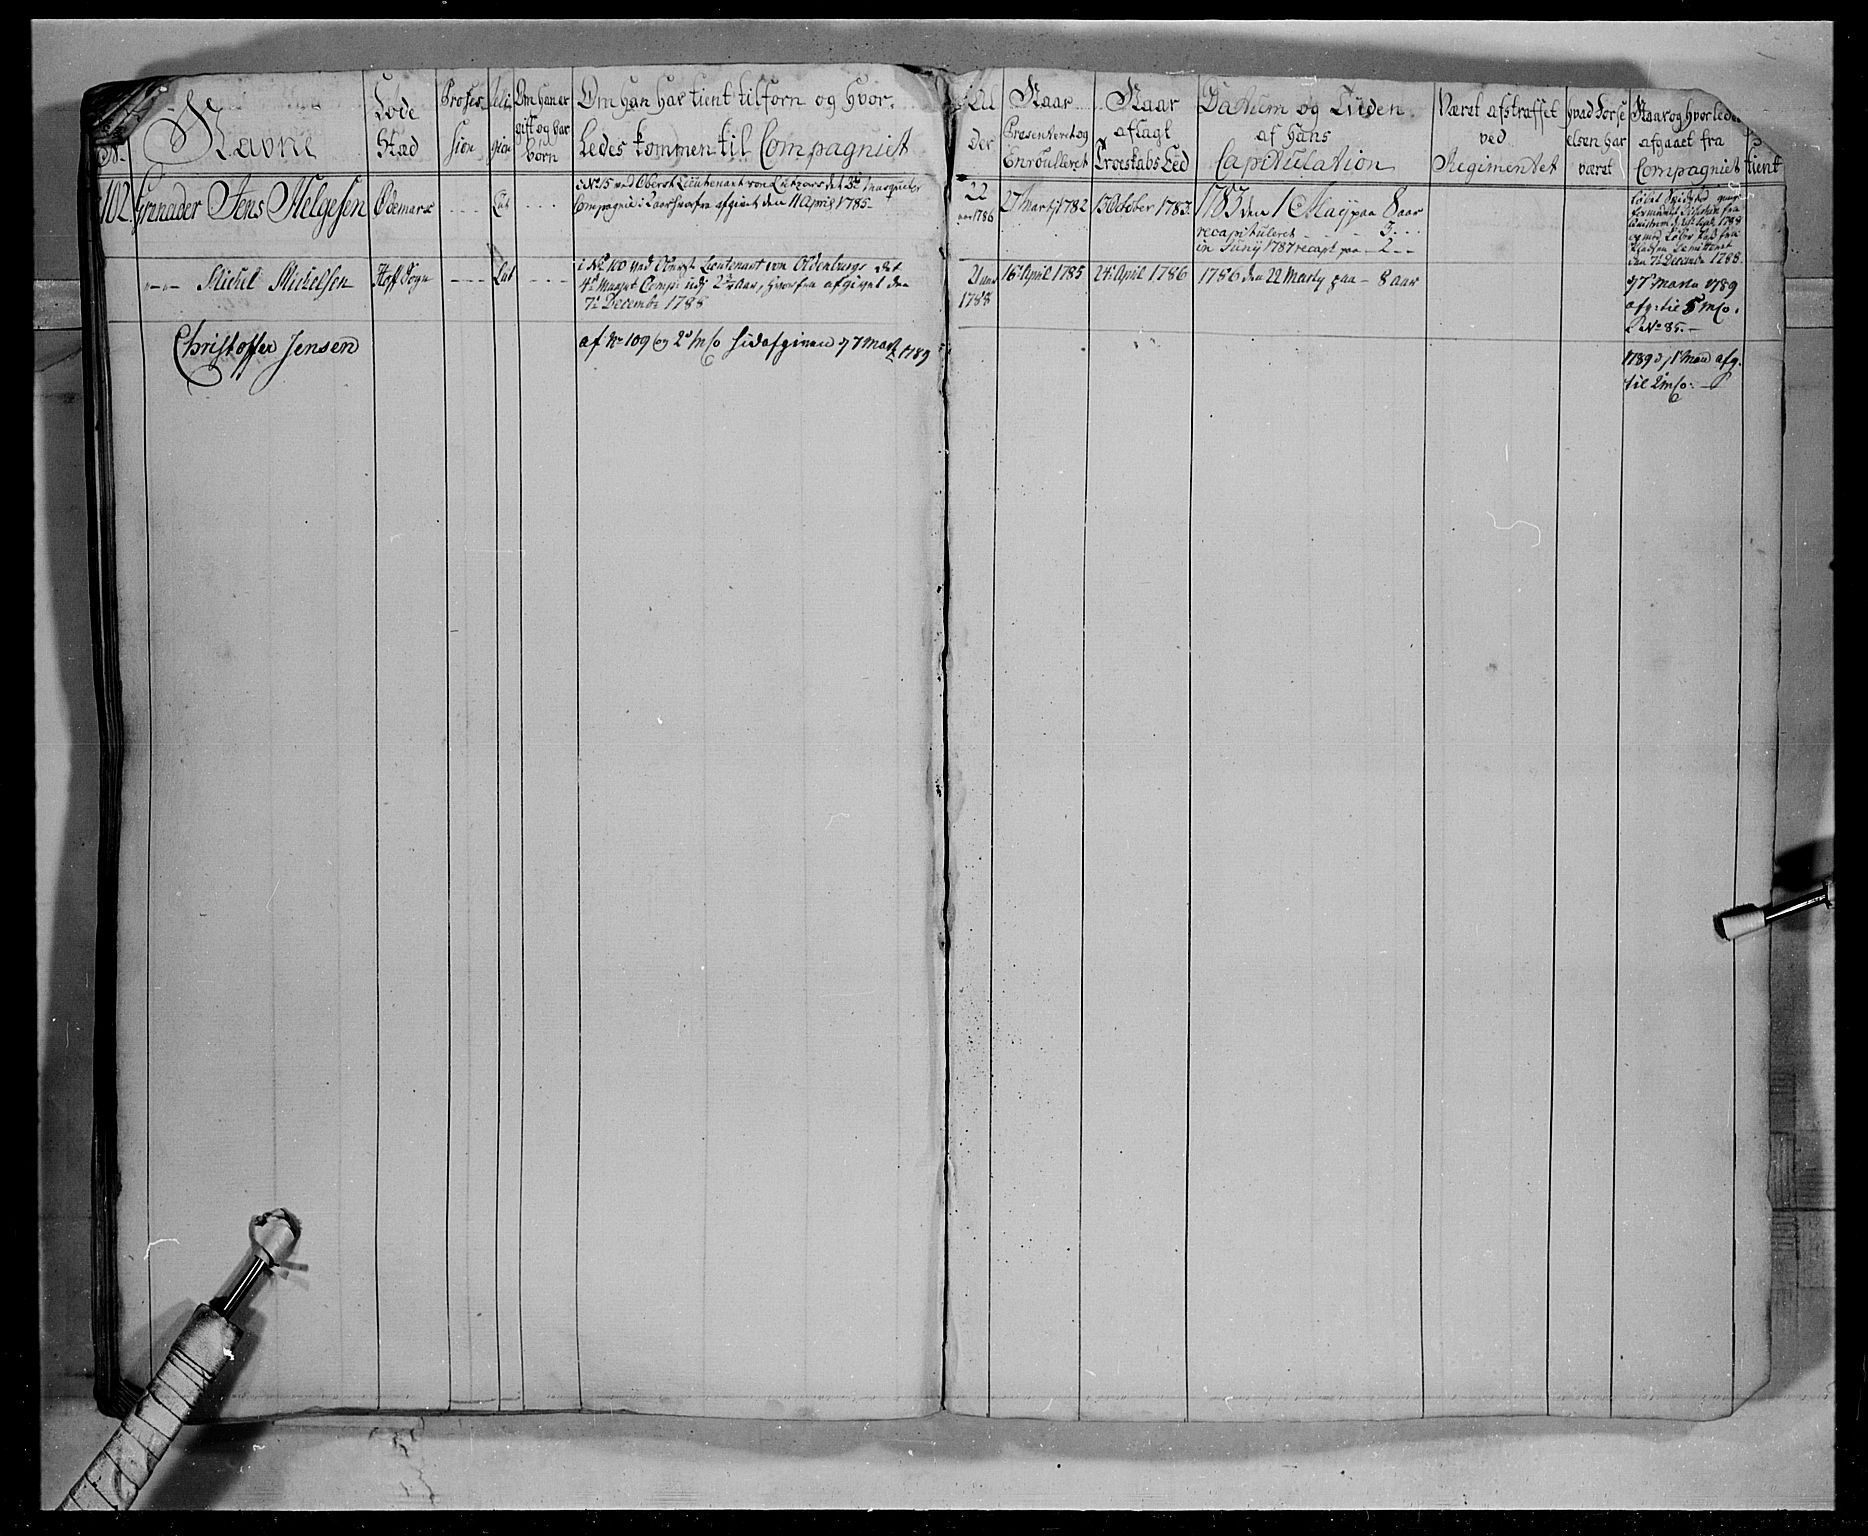 No.
Navne
Føde
Stad
Profes-
sion
Reli-
gion
Om han er
gift og har
Børn
Om han har tient tilforn og hvor-
Ledes kommen til Compagniet
Al
Der
Naar
Præsenteret og
Enroulleret
Naar
aflagt
Troeskabs Eed
Datum og Tiiden
af hans
Capitulation
Været afstraffet
ved
Regimentet
hvad Forse
elsen har
været
Naar og hvorledes
afgaaet fra
Compagniet
tient
102. Grenader Jens Helgesen
Ødemark
Lut
i No. 15 ved Oberst Lieutenant von Lützous det 3de Musqueter
Compagnie i 2 aar hvorfra afgivet den 11 April 1785-
22
aar 1786
27 Martij 1782
13 October 1783
1783 den 1 Maij paa 8 aar
recapituleret - - - 3 - - -
in Junij 1787 recapt. paa - 2 - -
1788
den 7de Decembr 1788
- - - Michel Michelsen
Hoff Sogn
Lut
i No 100 ved Oberst Lieutenant von Oldenburgs det
4de Musqt Comp: udj 2 3/4 aar, hvorfra afgivet den
7de Decembr 1788
21 aar
1788
16 April 1785
24 April 1786
1786 den 22 Martij paa - 8 aar
d 7de Martii 1789
afg: til 5 M/C.
No 85. -
Christoffer Jensen
af No 109 og 2de M/C hid afgiven d 7 Marts 1789
1789 d 1 Maij afg.
til 2 M/C. -